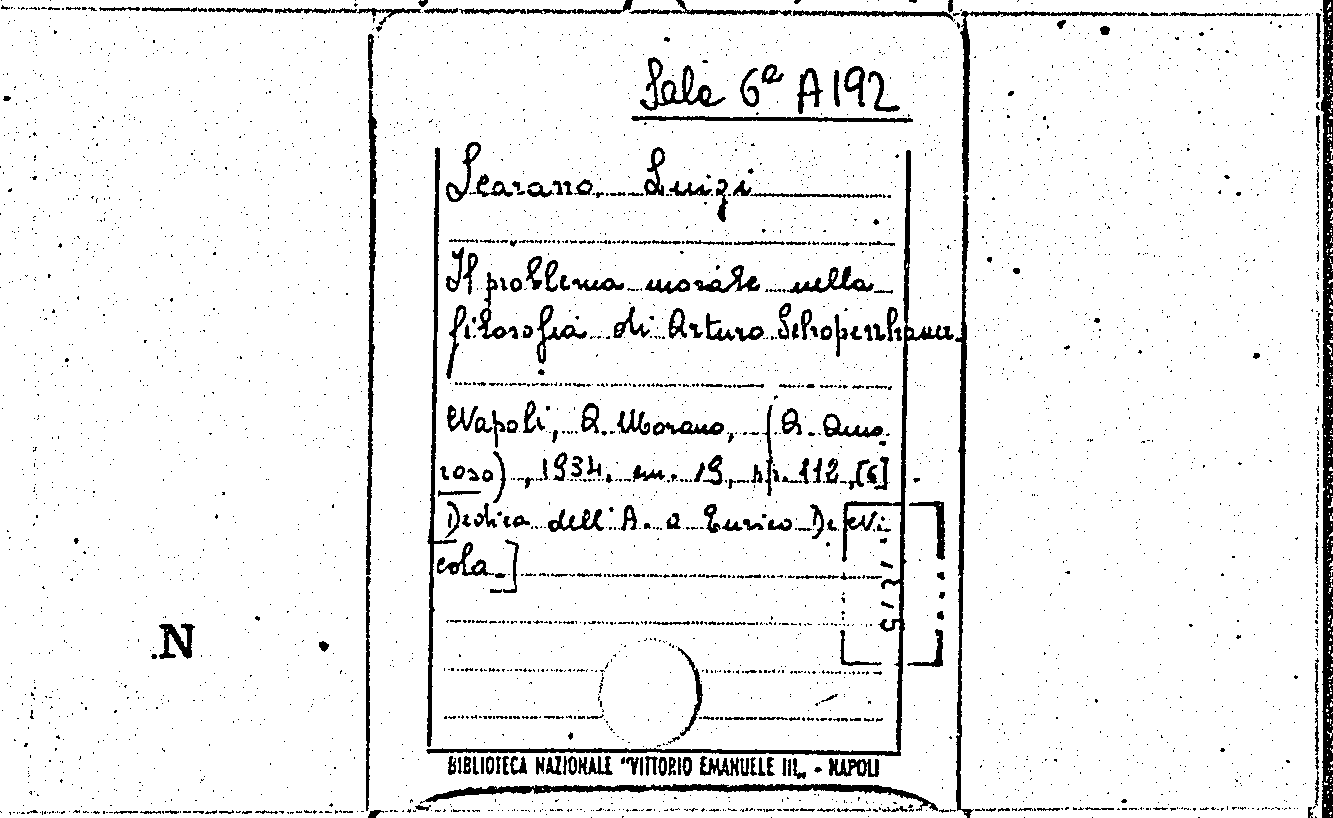 Sala 6ª A192
Scarano, Luigi
Il problema morale nella
filosofia di Arturo Schopenhauer.
Napoli, A. Morano, (A. Amo
roso), 1934, cm. 19, pp. 112, [6]
Dedica dell'A. a Enrico De Ni
cola.]
N
BIBLIOTECA NAZIONALE "VITTORIO EMANUELE III„ - NAPOLI